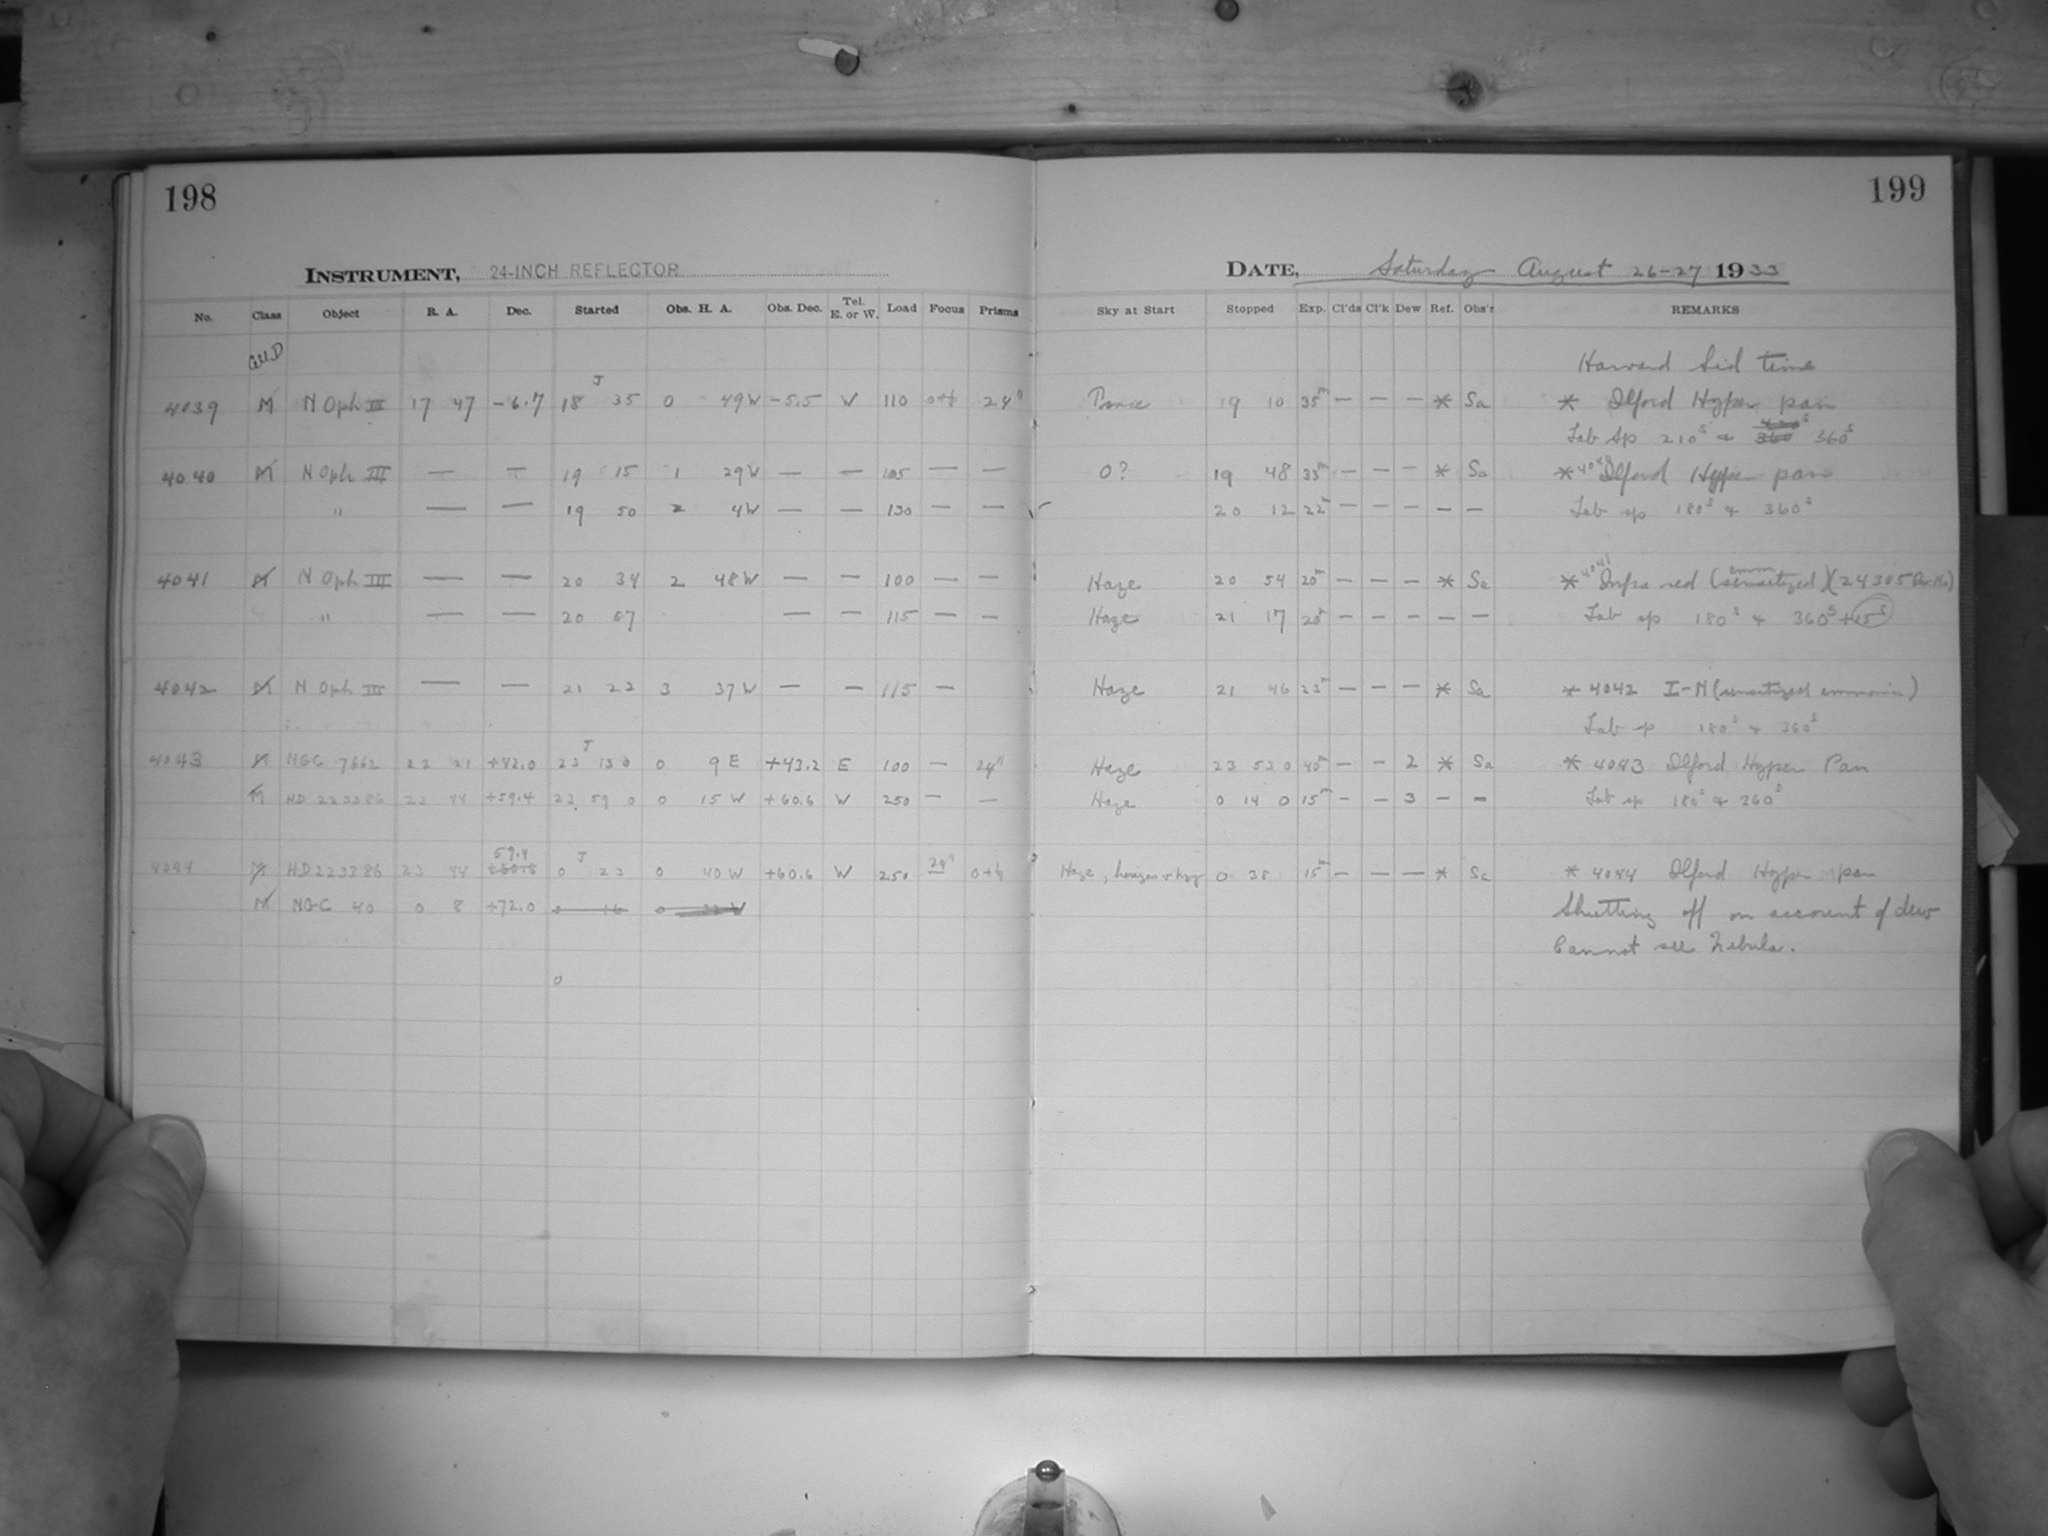 198
199
INSTRUMENT, 24-INCH REFLECTOR
DATE, Saturday August 26-27 1933
No. Class Object R. A. Dec. Started Obs. H. A. Obs. Dec. Tel. E. or W. Load Focus Prisms Sky at Start Stopped Exp. Cl'ds Cl'k Dew Ref. Obs'r REMARKS
Harvard Sid Time
4039 M N Oph III 17 47 -6.7 18 J 35 0 49W -5.5 W 110 24" 19 10 35m — — — * Sa * Ilford Hyper pan
Lab Sp 210s & 360s
4040 M N Oph III — — 19 15 1 29W — — 105 — — 0? 19 48 33m — — — * Sa * 4040 Ilford Hyper pan
" — — 19 50 2 4W — — 130 — — 20 12 22m — — — — — Lab sp 180s & 360s
4041 M N Oph III — — 20 34 2 48W — — 100 — — Haze 20 54 20m — — — * Sa * 4041 Infra red (sensitized) (24305
" — — 20 57 — — 115 — — Haze 21 17 20m — — — — — Lab sp 180s & 360s + 15s
4042 M N Oph III — — 21 22 3 37W — — 115 — Haze 21 46 23m — — — * Sa * 4042 I-N (sensitized ammonia)
Lab sp 180s & 360s
4043 M NGC 7662 23 21 +42.0 23 J 13 0 0 9 E +43.2 E 100 — 24" Haze 23 53 0 40m — — 2 * Sa * 4043 Ilford Hyper Pan
M HD 223386 23 44 +59.4 23 59 0 0 15 W +60.6 W 250 — — Haze 0 14 0 15m — — 3 — — Lab sp 180s & 360s
4044 M HD 223386 23 44 59.4 0 J 23 0 40 W +60.6 W 250 24" Haze, 0 38 15m — — — * Sa * 4044 Ilford Hyper pan
M NGC 40 0 8 +72.0 Shutting off on account of dew
Cannot see Nebula.
0